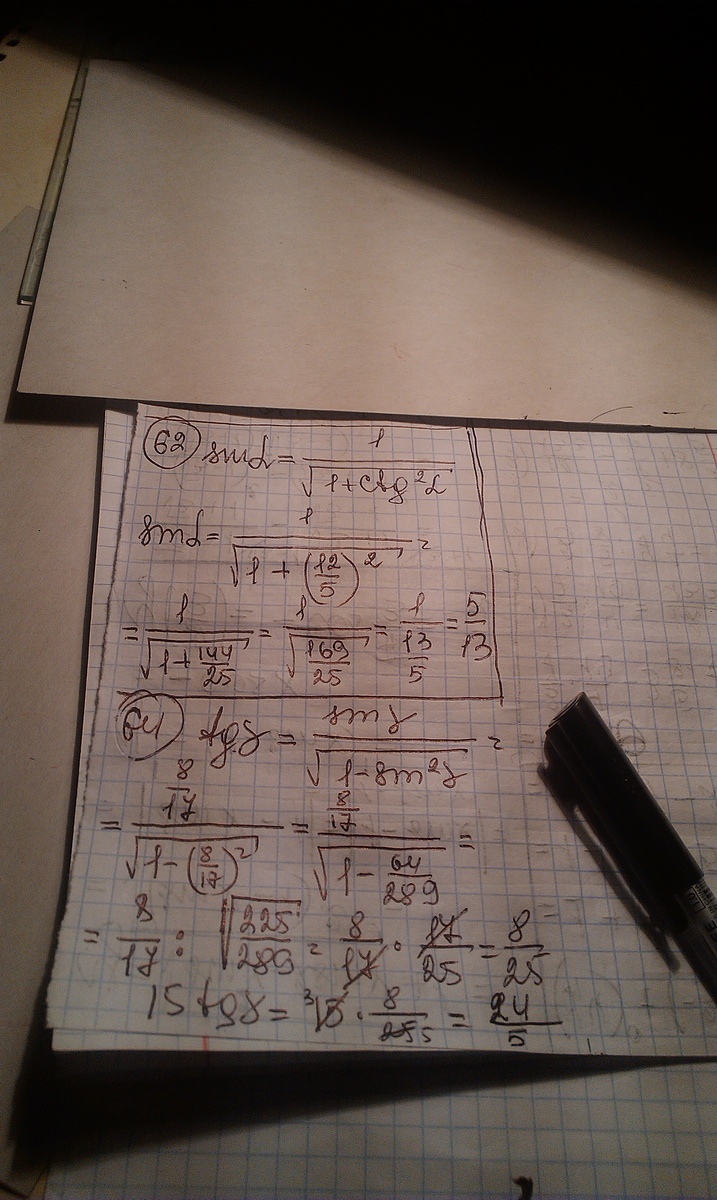 62 sin α = 1/√(1+ctg²α)
sin α = 1/√(1 + (12/5)²) =
= 1/√(1+144/25) = 1/√(169/25) = 1/(13/5) = 5/13
64 tg γ = sin γ/√(1-sin²γ) =
= (8/17)/√(1-(8/17)²) = (8/17)/√(1-64/289) =
= 8/17 : √(225/289) = 8/17 · 17/25 = 8/25
15 tg γ = ³15 · 8/25 5 = 24/5